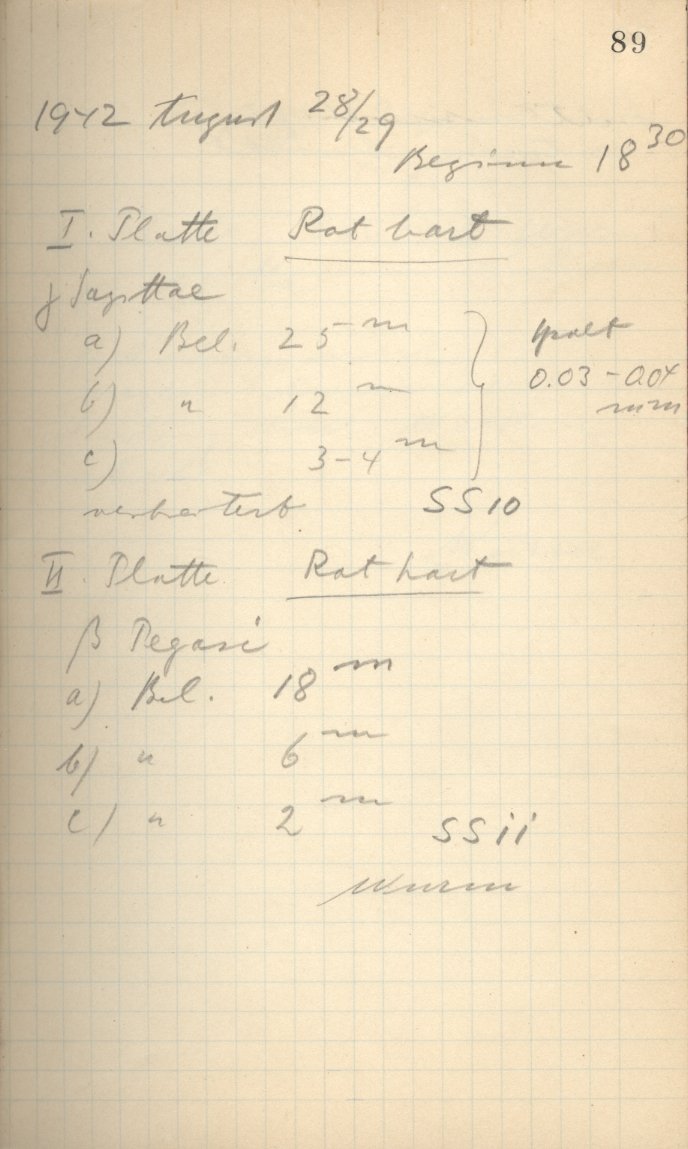 89
1942 August 28/29
Beginn 18 30
I. Platte Rot hart
γ Sagittae
a) Bel. 25 m
Spalt
0.03 - 0.04
mm
b) " 12 m
c) 3-4 m
SS10
II. Platte Rot hart
β Pegasi
a) Bel. 18 m
b) " 6 m
c) " 2 m
SS11
Wurm